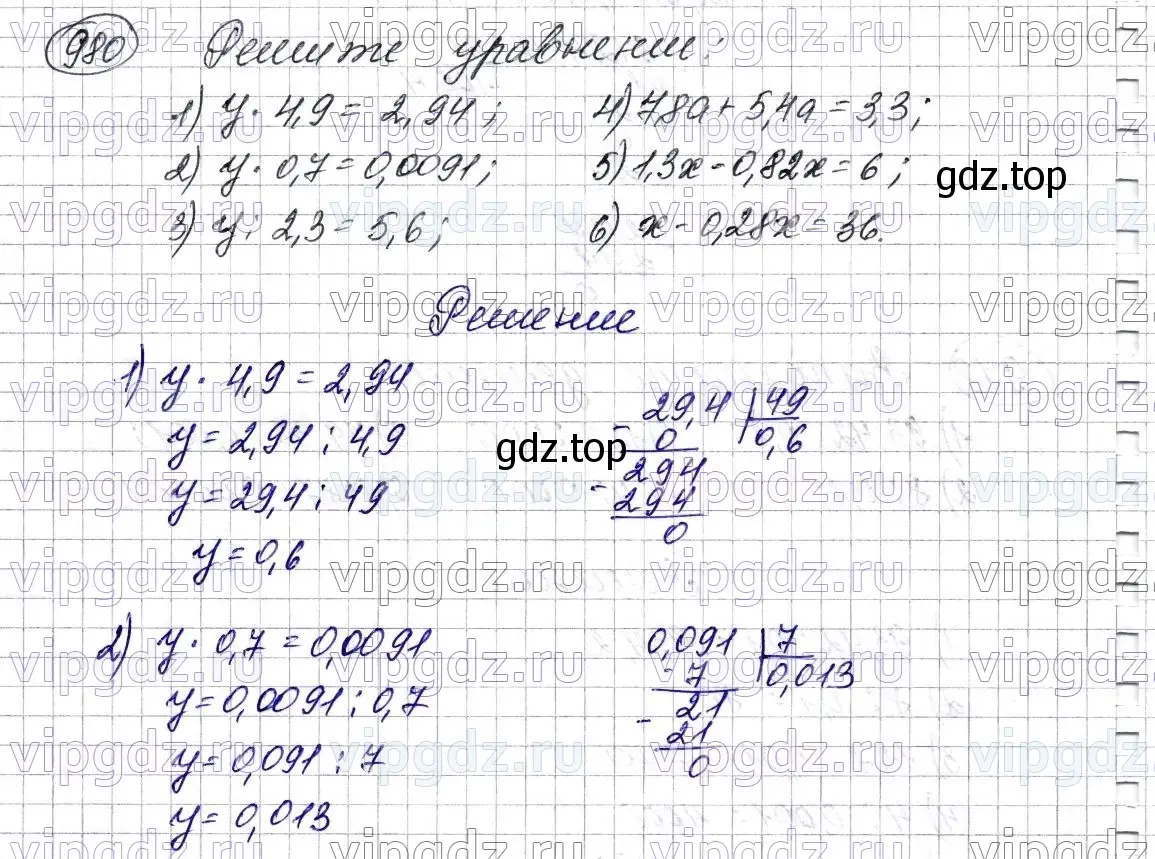 980 Решите уравнении:
1) y · 4,9 = 2,94; 4) 7,8a + 5,4a = 3,3;
2) y · 0,7 = 0,0091; 5) 1,3x - 0,82x = 6;
gdz.top
3) y : 2,3 = 5,6; 6) x - 0,28x = 36.
Решение
1) y · 4,9 = 2,94
y = 2,94 : 4,9
y = 29,4 : 49
y = 0,6
29,4 | 49
- 0 | 0,6
294
- 294
0
gdz.top
2) y · 0,7 = 0,0091
y = 0,0091 : 0,7
y = 0,091 : 7
y = 0,013
0,091 | 7
- 7 | 0,013
21
- 21
0
vipgdz.ru vipgdz.ru vipgdz.ru vipgdz.ru